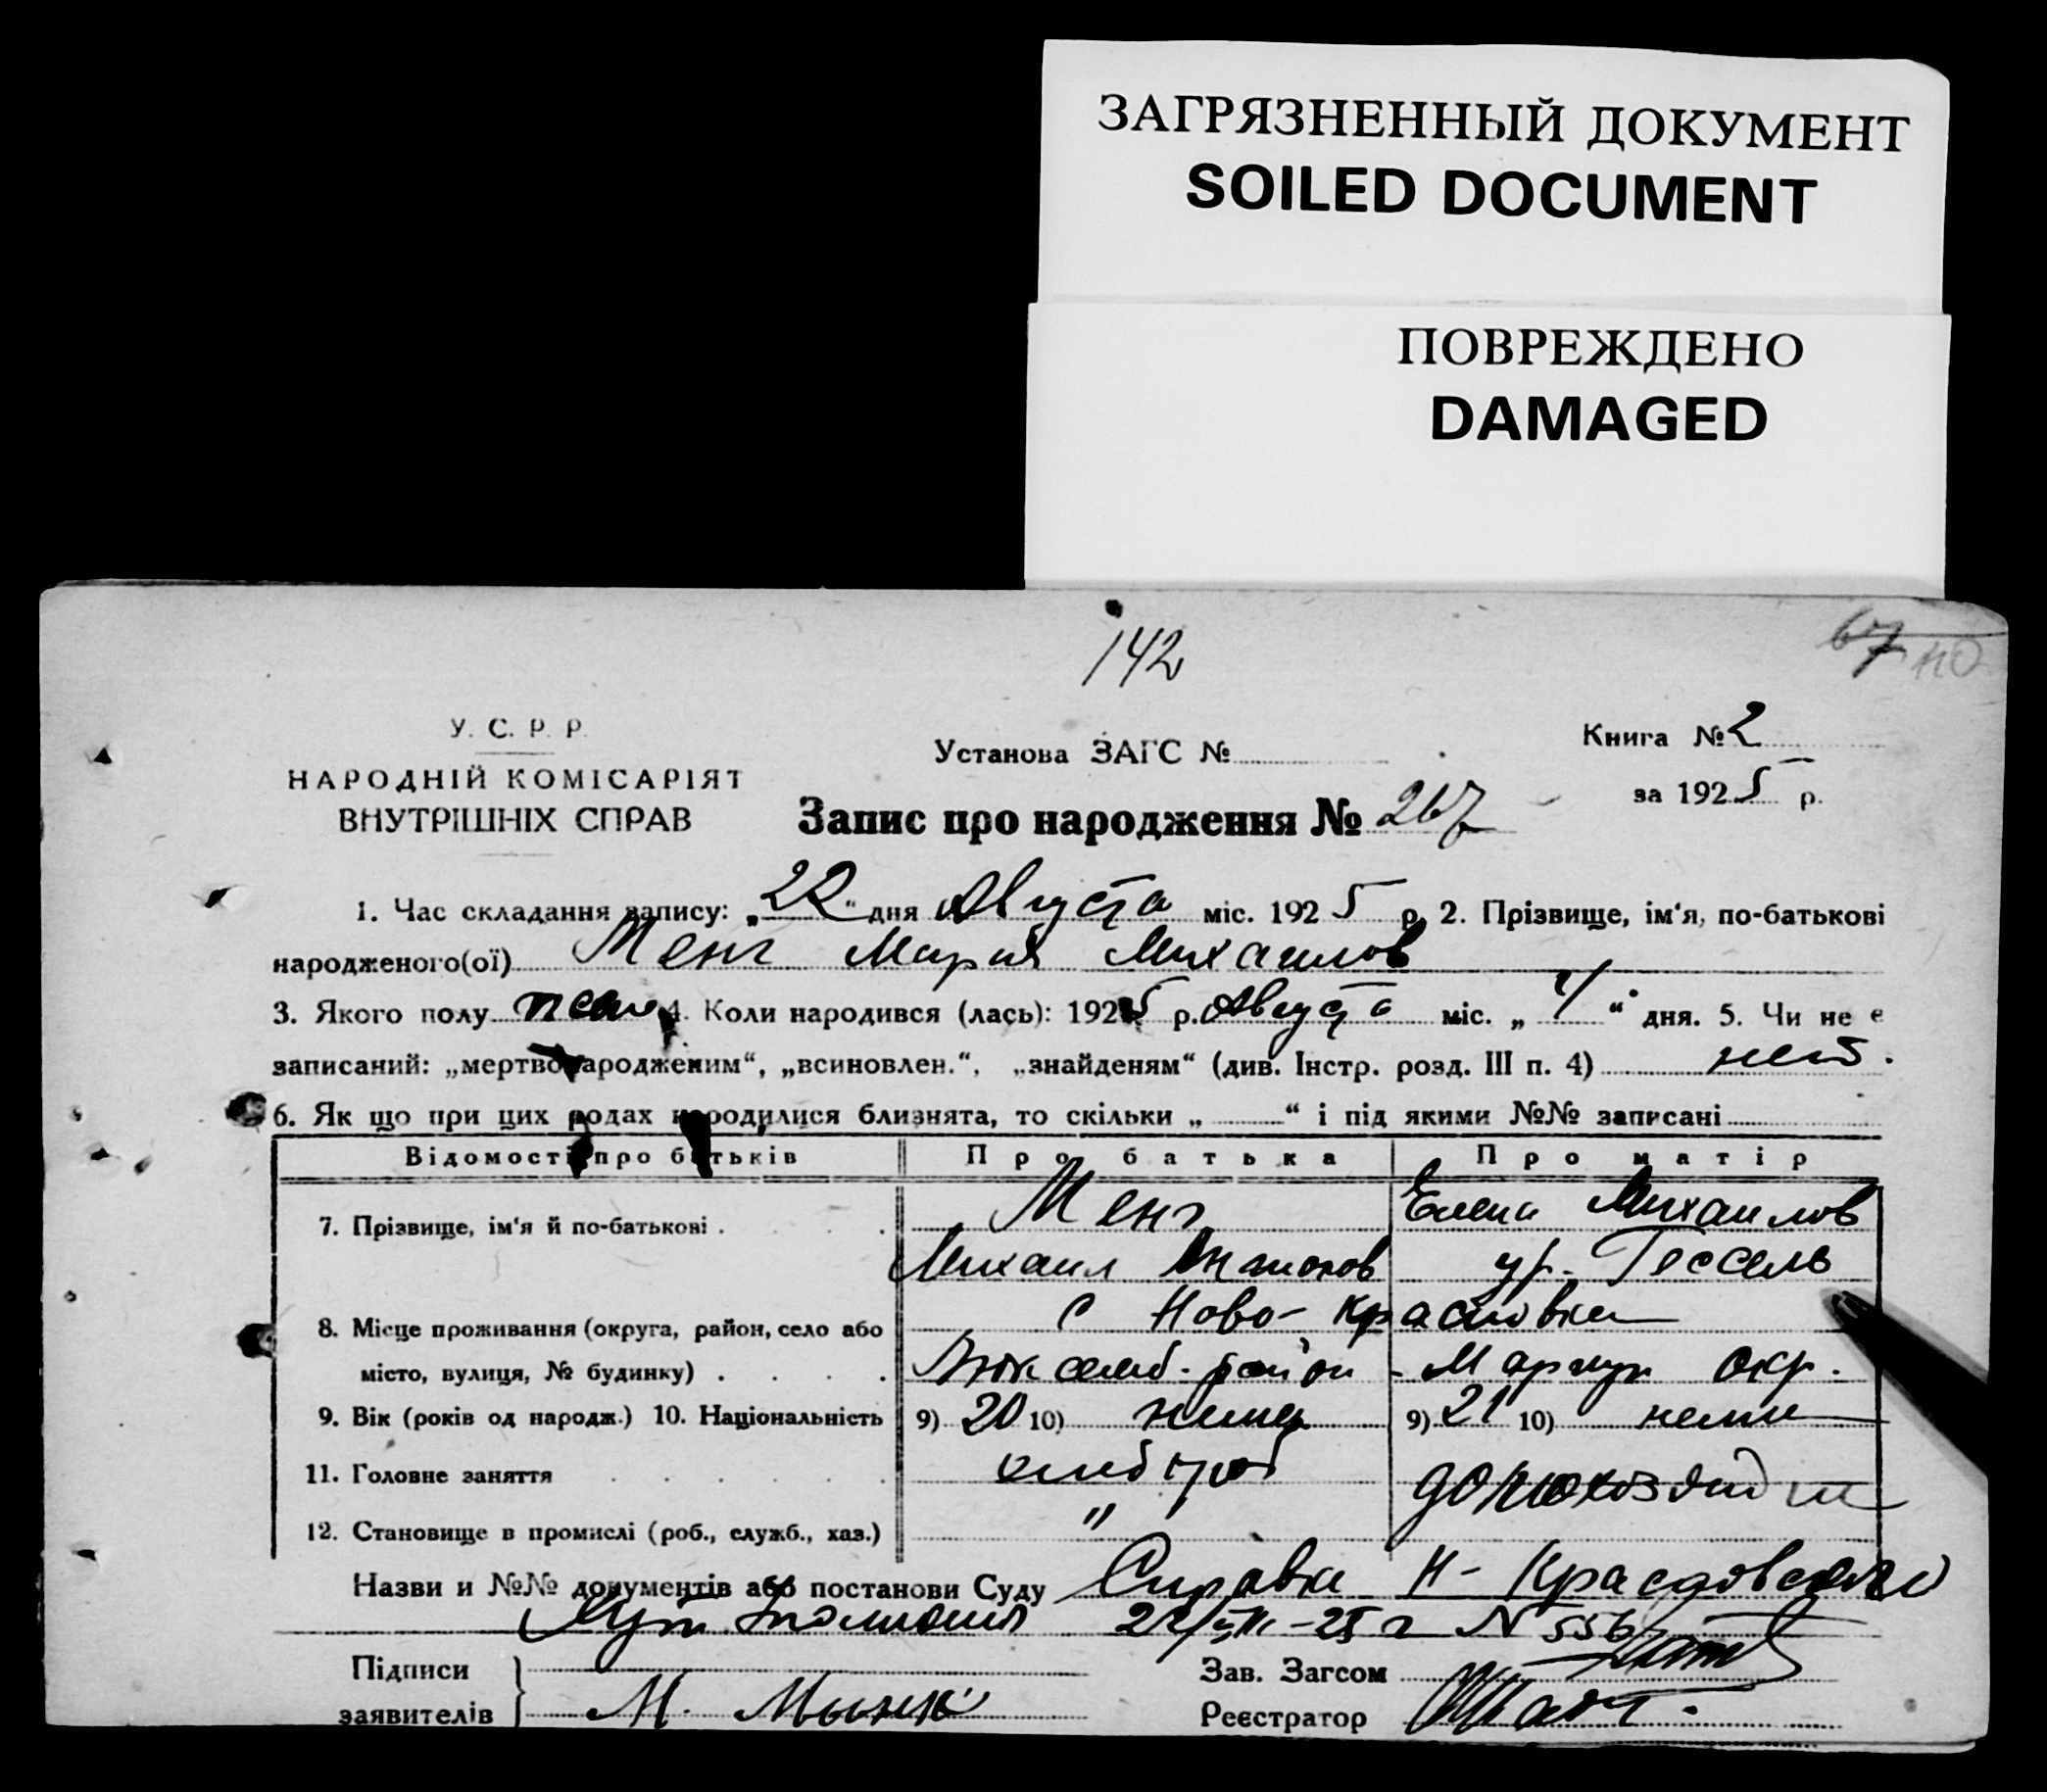 ЗАГРЯЗНЕННЫЙ ДОКУМЕНТ
SOILED DOCUMENT
ПОВРЕЖДЕНО
DAMAGED
142
67 110
У. С. Р. Р.
НАРОДНІЙ КОМІСАРІЯТ
ВНУТРІШНІХ СПРАВ
Установа ЗАГС №
Книга № 2
за 1925 р.
Запис про народження № 267
1. Час складання запису: „22“ дня Августа міс. 1925 р. 2. Прізвище, ім'я, по-батькові
народженого(ої) Менг Мария Михаилов
3. Якого полу 4. Коли народився (лась): 1925 р. Августа міс. „ “ дня. 5. Чи не є
записаний: „мертвонародженим“, „всиновлен.“, „знайденям“ (див. Інстр. розд. III п. 4) нет.
6. Як що при цих родах народилися близнята, то скільки „ “ і під якими №№ записані
Відомості про батьків Про батька Про матір
7. Прізвище, ім'я й по-батькові . . . . Менг Елена Михаилов
Михаил Антонов ур. Гессель
8. Місце проживання (округа, район, село або с Ново-Красновка
місто, вулиця, № будинку) . . . . Люксемб. район - Мариуп окр.
9. Вік (років од народж.) 10. Національність 9) 20 10) немец 9) 21 10) немк
11. Головне заняття . . . . . . хлебороб домохозяй
12. Становище в промислі (роб., служб., хаз.) "
Назви и №№ документів або постанови Суду Справка Н-Красновского
22/VIII-25 г N 556
Підписи
заявителів М.
Зав. Загсом
Реєстратор